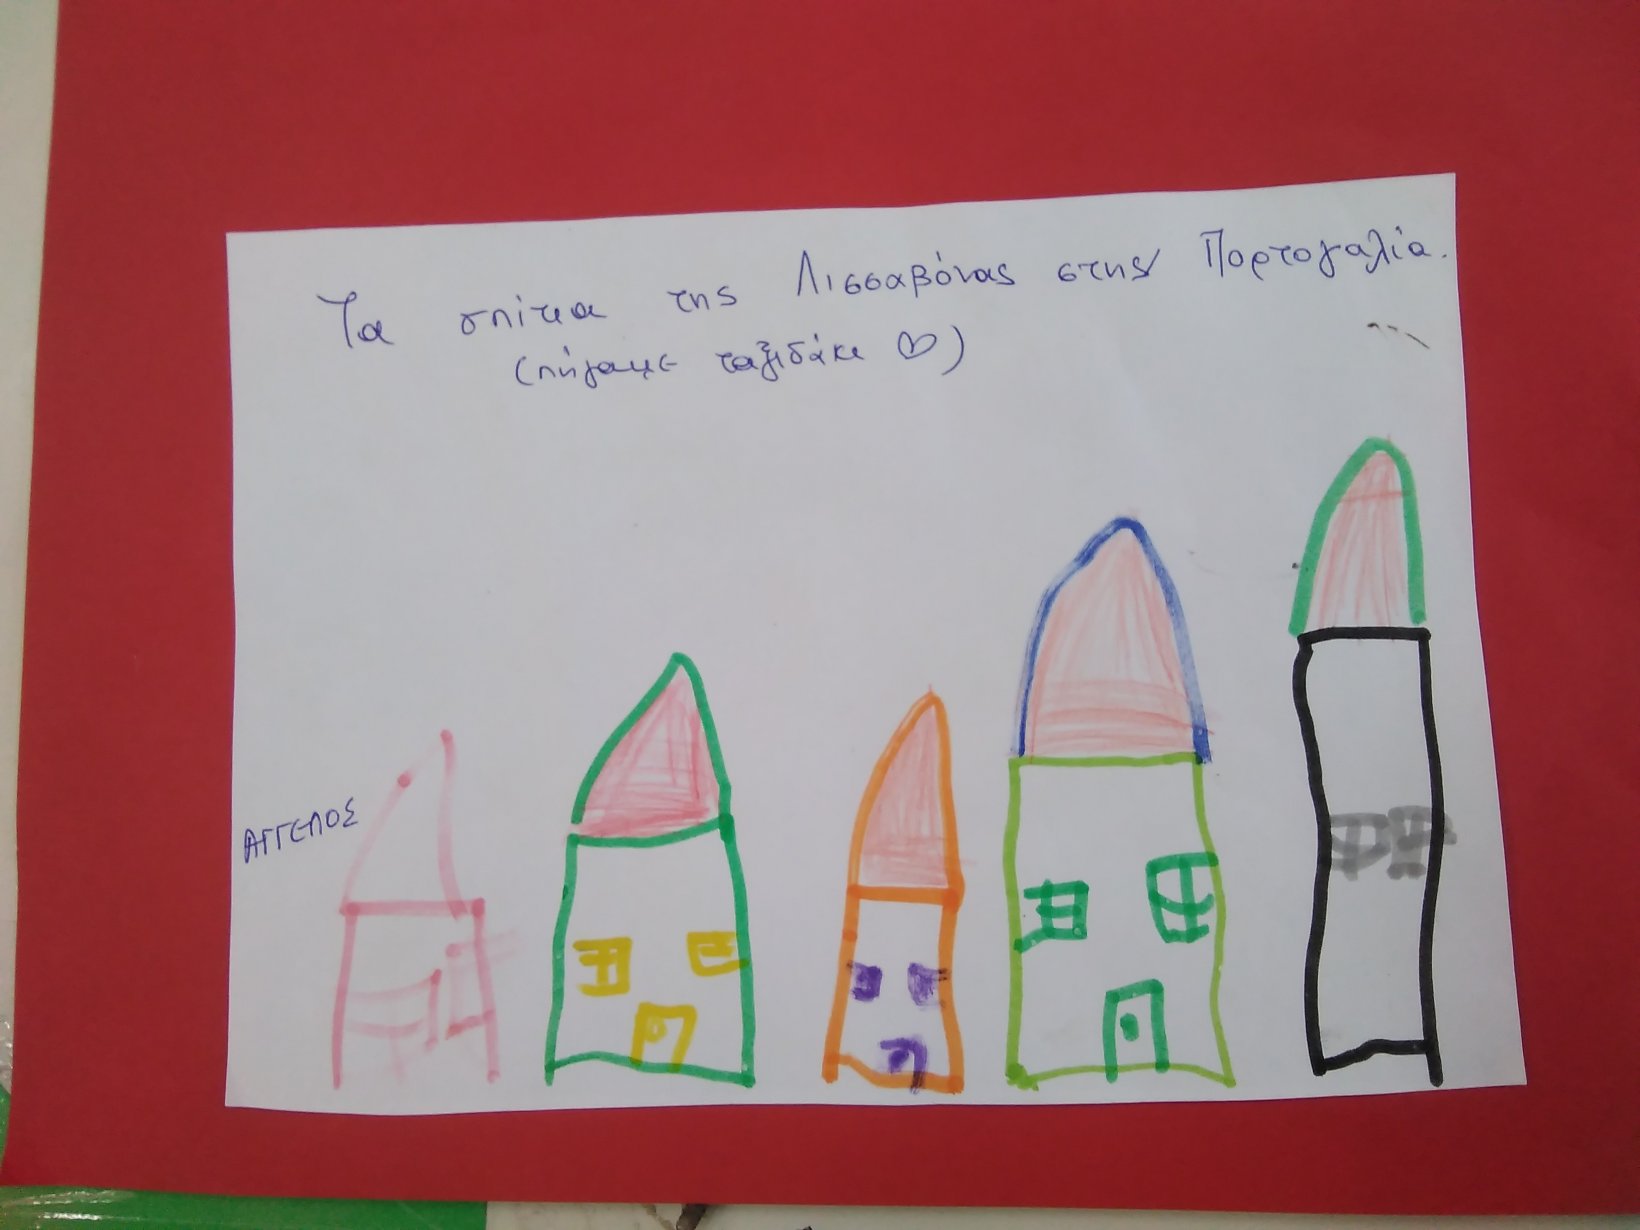 Τα σπίτια της Λισσαβόνας στην Πορτογαλία.
(πήγαμε ταξιδάκι ♡)
ΑΓΓΕΛΟΣ